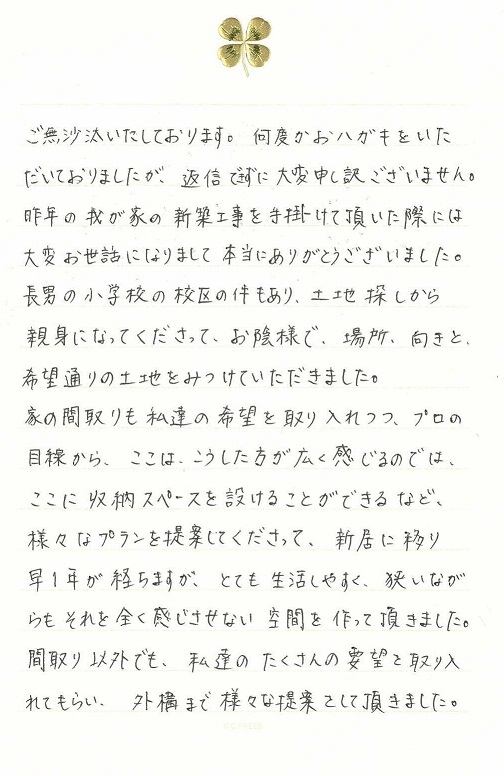 ご無沙汰いたしております。何度かおハガキをいた
だいておりましたが、返信できずに大変申し訳ございません。
昨年の我が家の新築工事を手掛けて頂いた際には
大変お世話になりまして本当にありがとうございました。
長男の小学校の校区の件もあり、土地探しから
親身になってくださって、お陰様で、場所、向きと、
希望通りの土地をみつけていただきました。
家の間取りも私達の希望を取り入れつつ、プロの
目線から、ここは、こうした方が広く感じるのでは、
ここに収納スペースを設けることができるなど、
様々なプランを提案してくださって、新居に移り
早1年が経ちますが、とても生活しやすく、狭いなが
らもそれを全く感じさせない空間を作って頂きました。
間取り以外でも、私達のたくさんの要望を取り入
れてもらい、外構まで様々な提案をして頂きました。